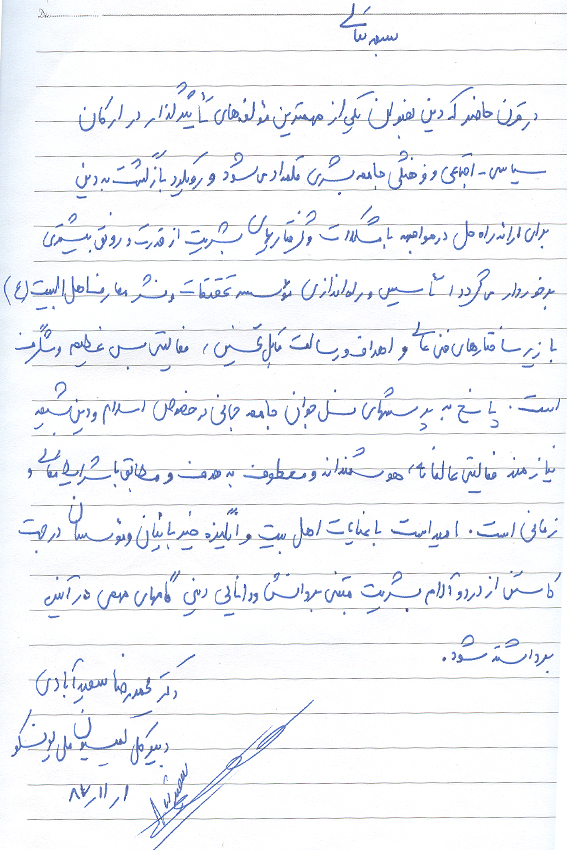 بسمه تعالی
در قرن حاضر که دین بعنوان یکی از مهمترین مؤلفه‌های تأثیرگذار در ارکان
سیاسی - اجتماعی و فرهنگی جامعه بشری قلمداد می‌شود و رویکرد بازگشت به دین
برای ارائه راه حل در مواجهه با مشکلات و گرفتاریهای بشریت از قدرت و رونق بیشتری
برخوردار می‌گردد، تأسیس و راه‌اندازی مؤسسه تحقیقات و نشر معارف اهل البیت (ع)
با زیرساختارهای فنی عالی و اهداف و رسالت قابل تحسین، فعالیتی بس عظیم و شگرف
است. پاسخ به پرسشهای نسل جوان جامعه جهانی در خصوص اسلام و دین شیعه
نیازمند فعالیتی عالمانه، هوشمندانه و معطوف به هدف و مطابق با شرایط مکانی و
زمانی است. امید است با عنایات اهل بیت و انگیزه خیر بانیان و مؤسسان در جهت
کاستن از درد و آلام بشریت مبتنی بر دانش و دانایی دینی گامهای مهمی در آتیه
برداشته شود.
دکتر محمدرضا سعیدآبادی
دبیرکل کمیسیون ملی یونسکو
۸۷/۱۱/۱